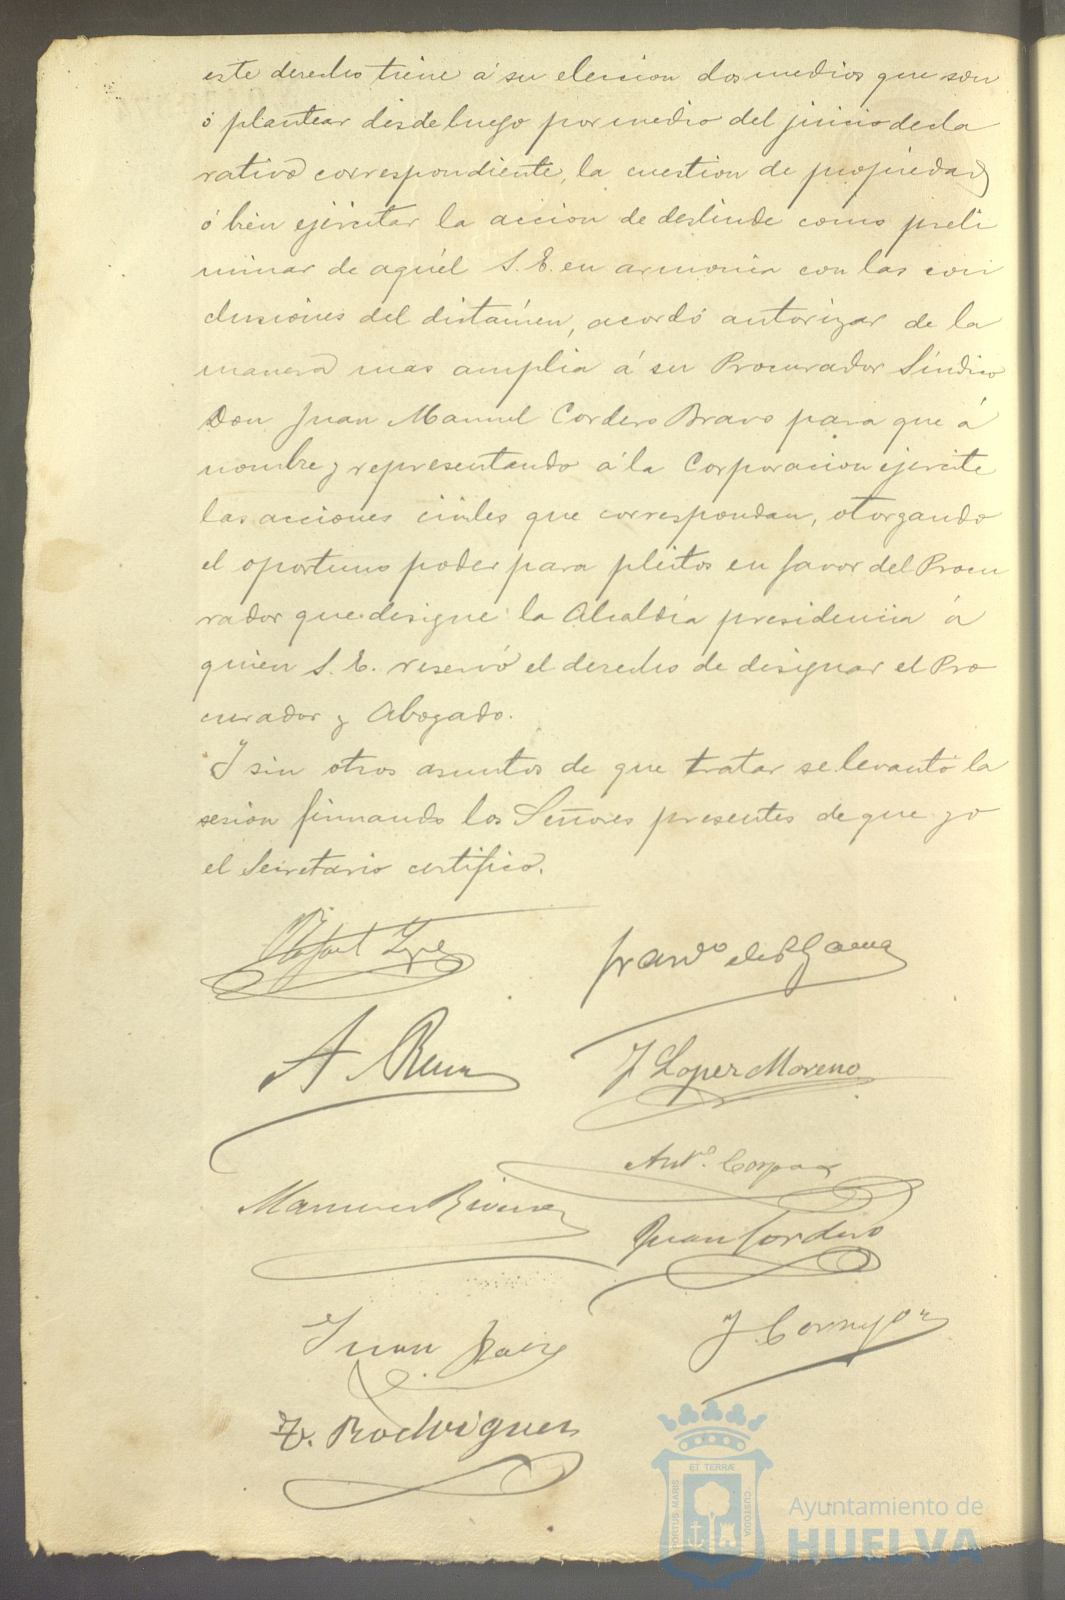 este derecho tiene á su eleccion dos medios que son
ó plantear desde luego por medio del juicio decla
rativo correspondiente, la cuestion de propiedad
ó bien ejercitar la accion de deslinde como preli
minar de aquél S. E. en armonia con las con
clusiones del dictámen, acordó autorizar de la
manera mas amplia á su Procurador Síndico
Don Juan Manuel Cordero Bravo para que á
nombre y representando á la Corporacion ejercite
las acciones civiles que correspondan, otorgando
el oportuno poder para pleitos en favor del Procu
rador que designe la Alcaldía presidencia á
quien S. E. reservó el derecho de designar el Pro
curador y Abogado.
Y sin otros asuntos de que tratar se levantó la
sesion firmando los Señores presentes de que yo
el Secretario certifico.
Rafael
A.
J Lopez Moreno
Antº. Corpas
Manuel Rivera
Juan Cordero
Juan
J.
Rodriguez
ET TERRÆ
PORTUS MARIS
CUSTODIA
Ayuntamiento de
HUELVA